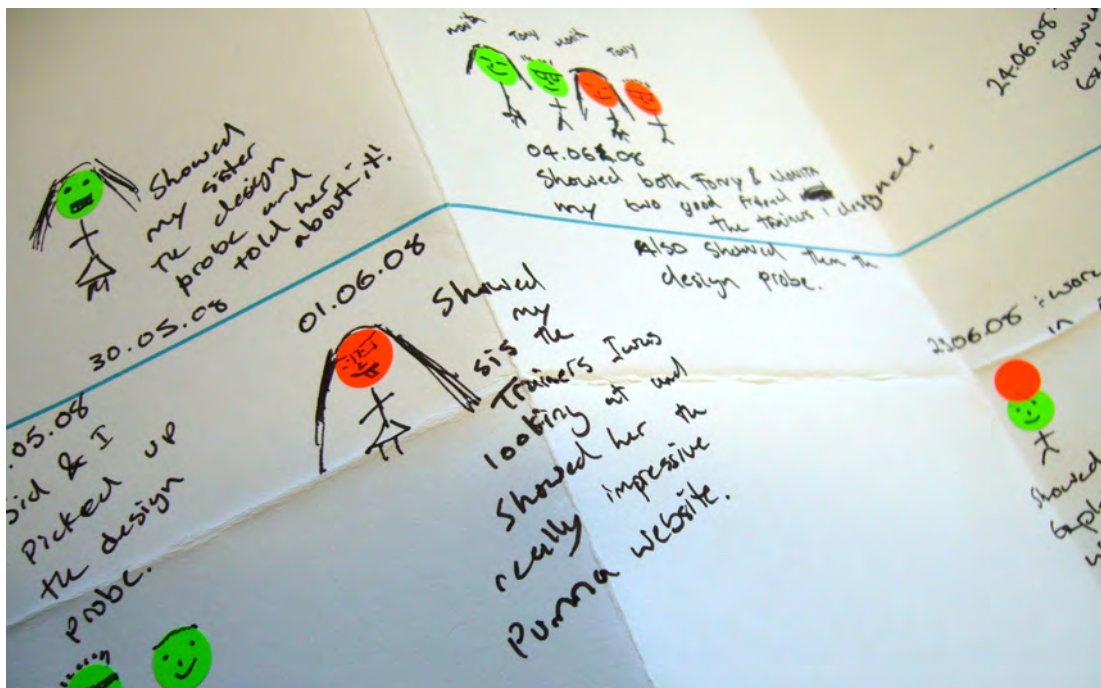 Showed
my sister
the design
probe and
told her
about it!
30.05.08
.05.08
Sid & I
picked up
the design
probe.
01.06.08
Showed
my
sis the
Trainers I was
looking at and
showed her the
really impressive
Puma website.
Tony
Tony
04.06.08
Showed both Tony &
my two good friend
the trainers I designed.
Also showed them the
design probe.
24.06.08:
Showed
23.06.08 : I work
in
Showed